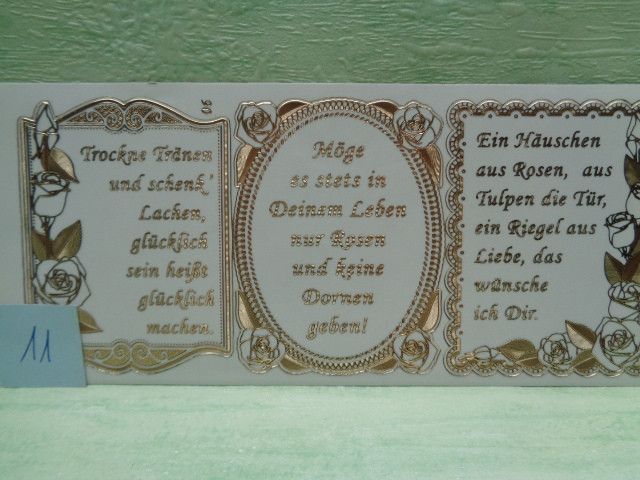 Trockne Tränen
und schenk'
Lachen,
glücklich
sein heißt
glücklich
machen.
06
Möge
es stets in
Deinem Leben
nur Rosen
und keine
Dornen
geben!
Ein Häuschen
aus Rosen, aus
Tulpen die Tür,
ein Riegel aus
Liebe, das
wünsche
ich Dir.
11